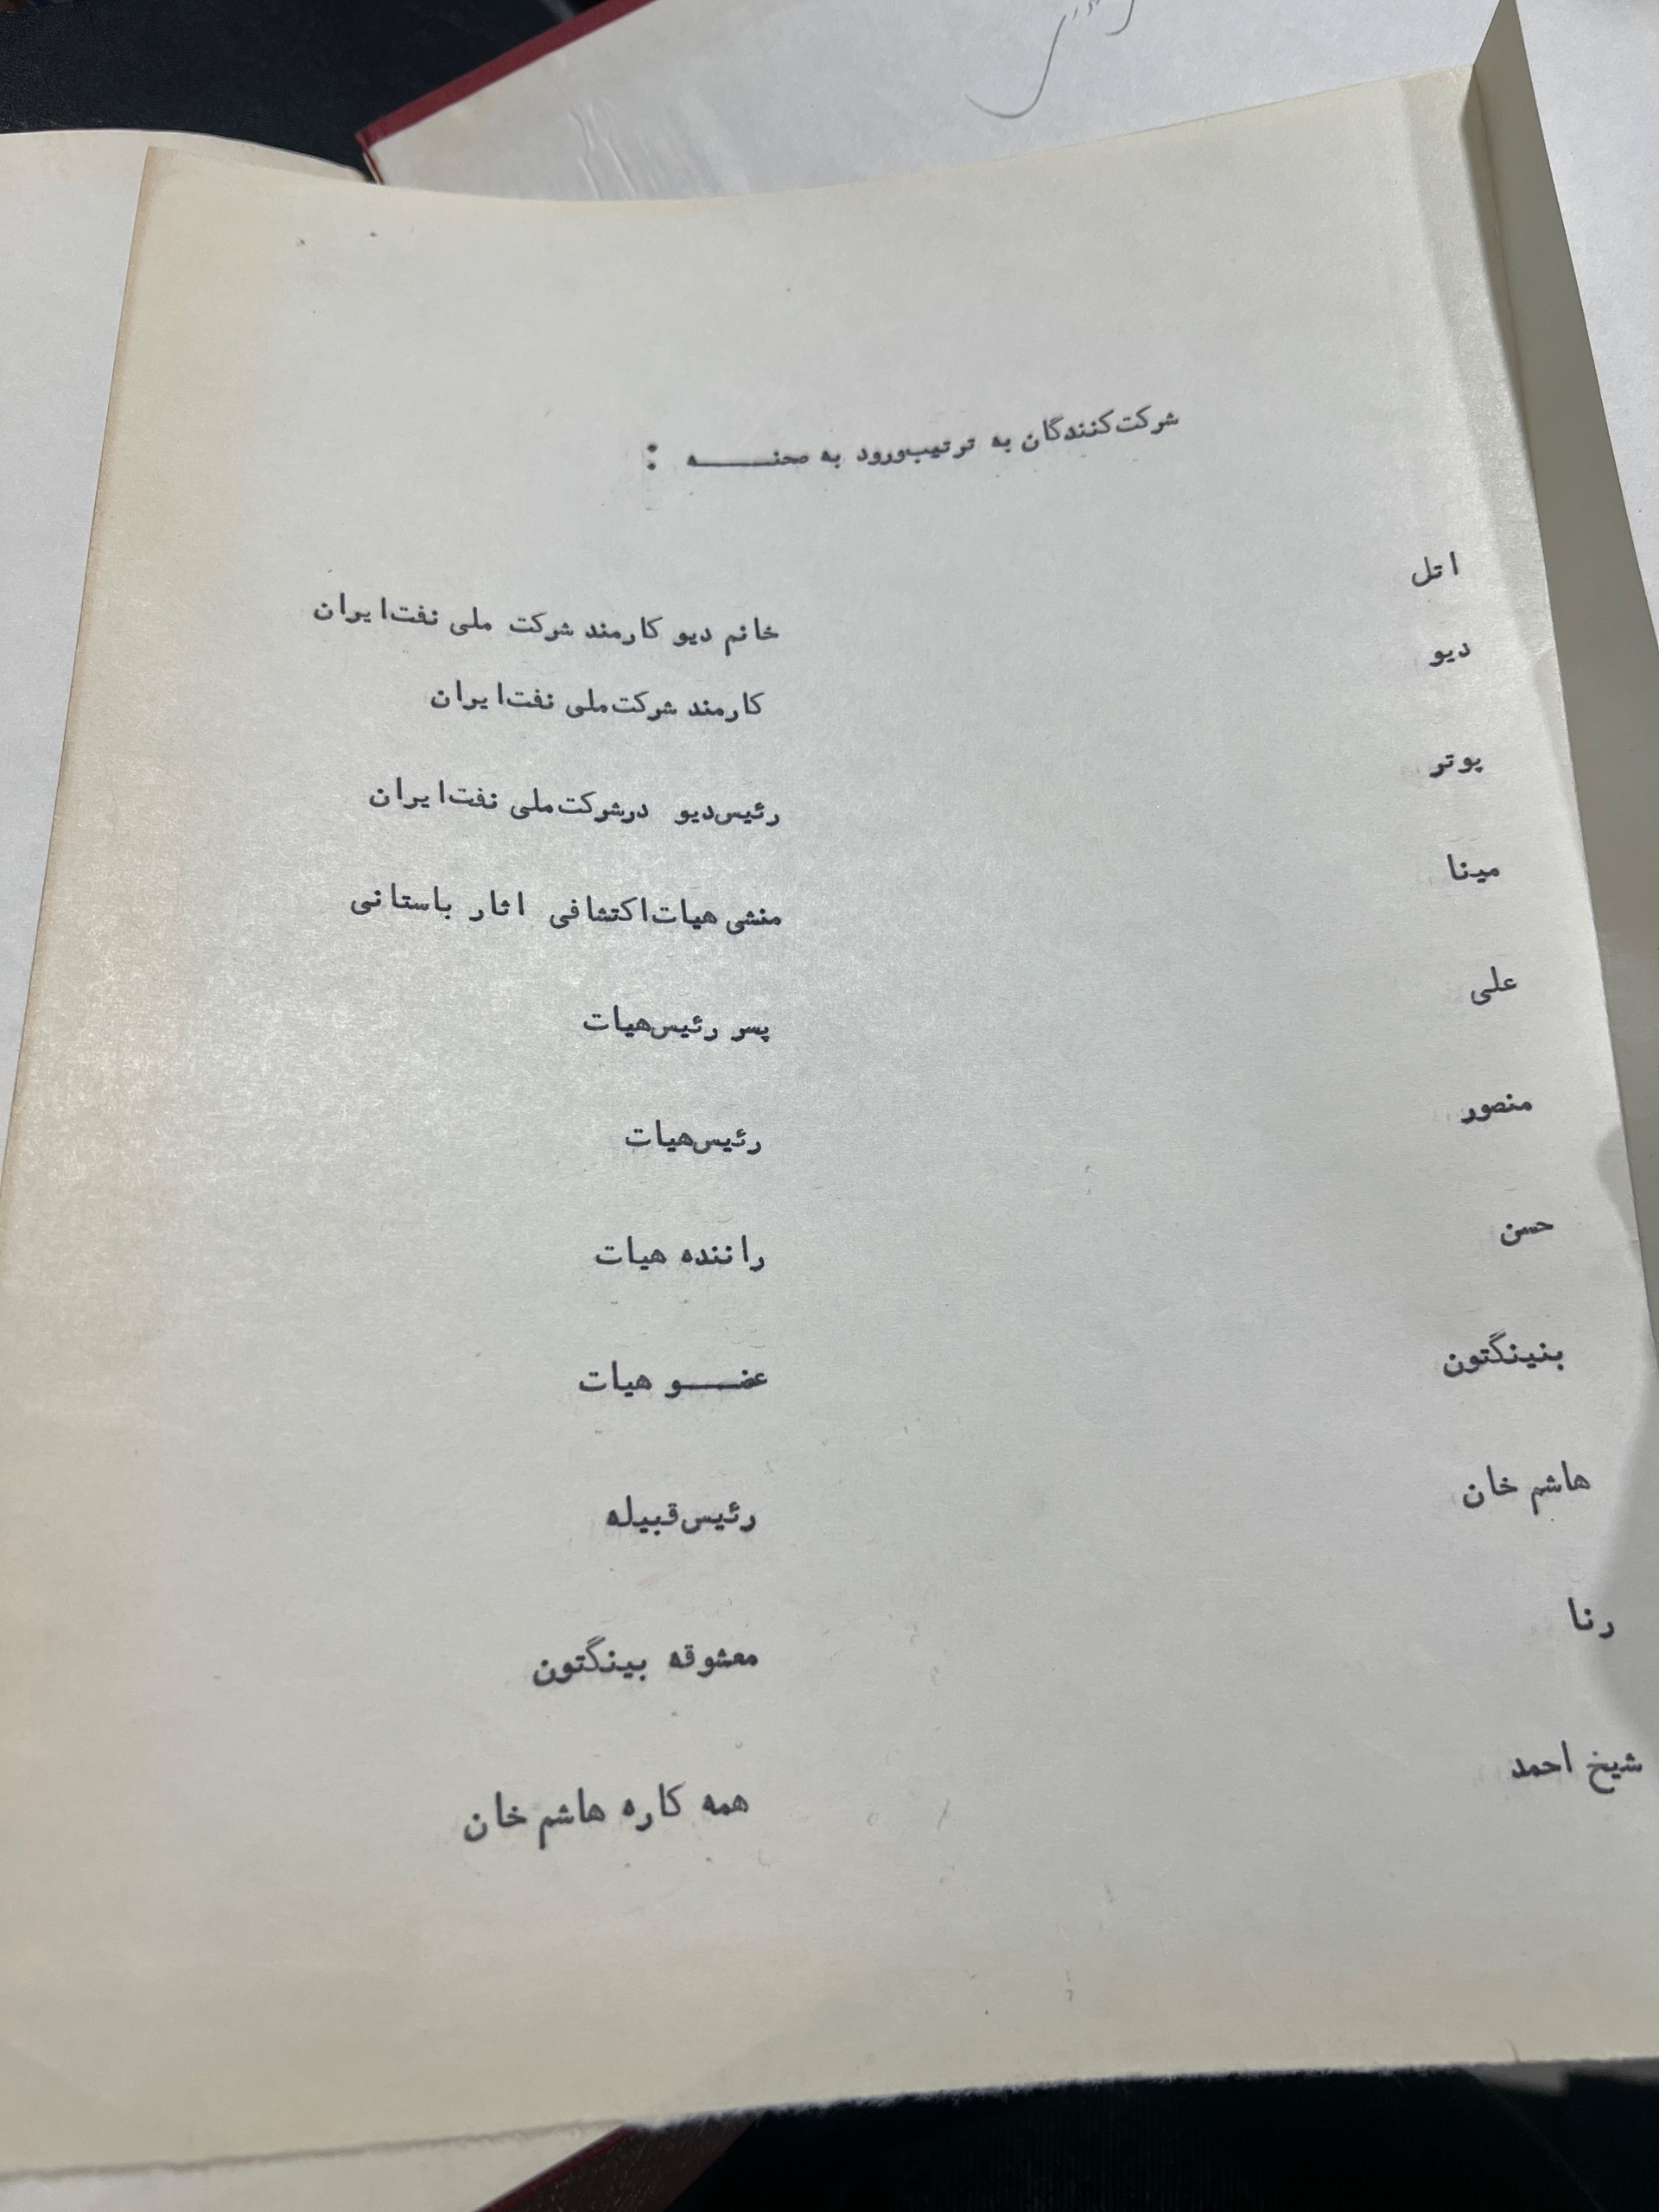 شرکت‌کنندگان به ترتیب‌ورود به صحنـــــه :
اتل خانم دیو کارمند شرکت ملی نفت‌ایران
دیو کارمند شرکت‌ملی نفت‌ایران
پوتر رئیس‌دیو درشرکت‌ملی نفت‌ایران
مینا منشی هیات‌اکتشافی اثار باستانی
علی پسر رئیس‌هیات
منصور رئیس‌هیات
حسن راننده هیات
بنینگتون عضـــو هیات
هاشم خان رئیس‌قبیله
رنا معشوقه بینگتون
شیخ احمد همه کاره هاشم خان